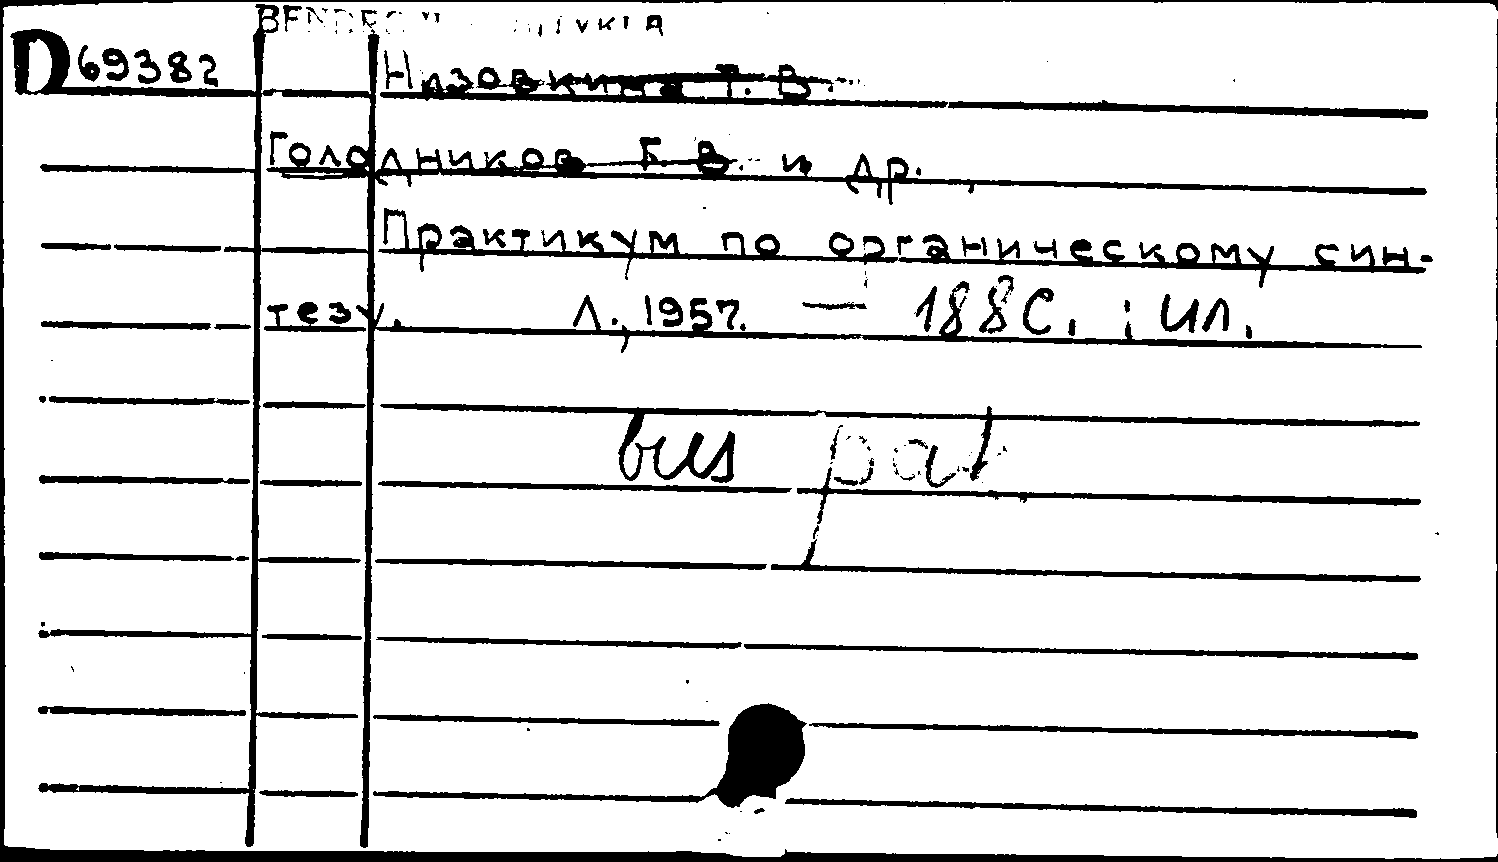 D 69382
Низовкина Т. В.
Голодников Г. В. и др.,
Практикум по органическому син-
тезу. Л., 1957. — 188 с. ; ил.
bus